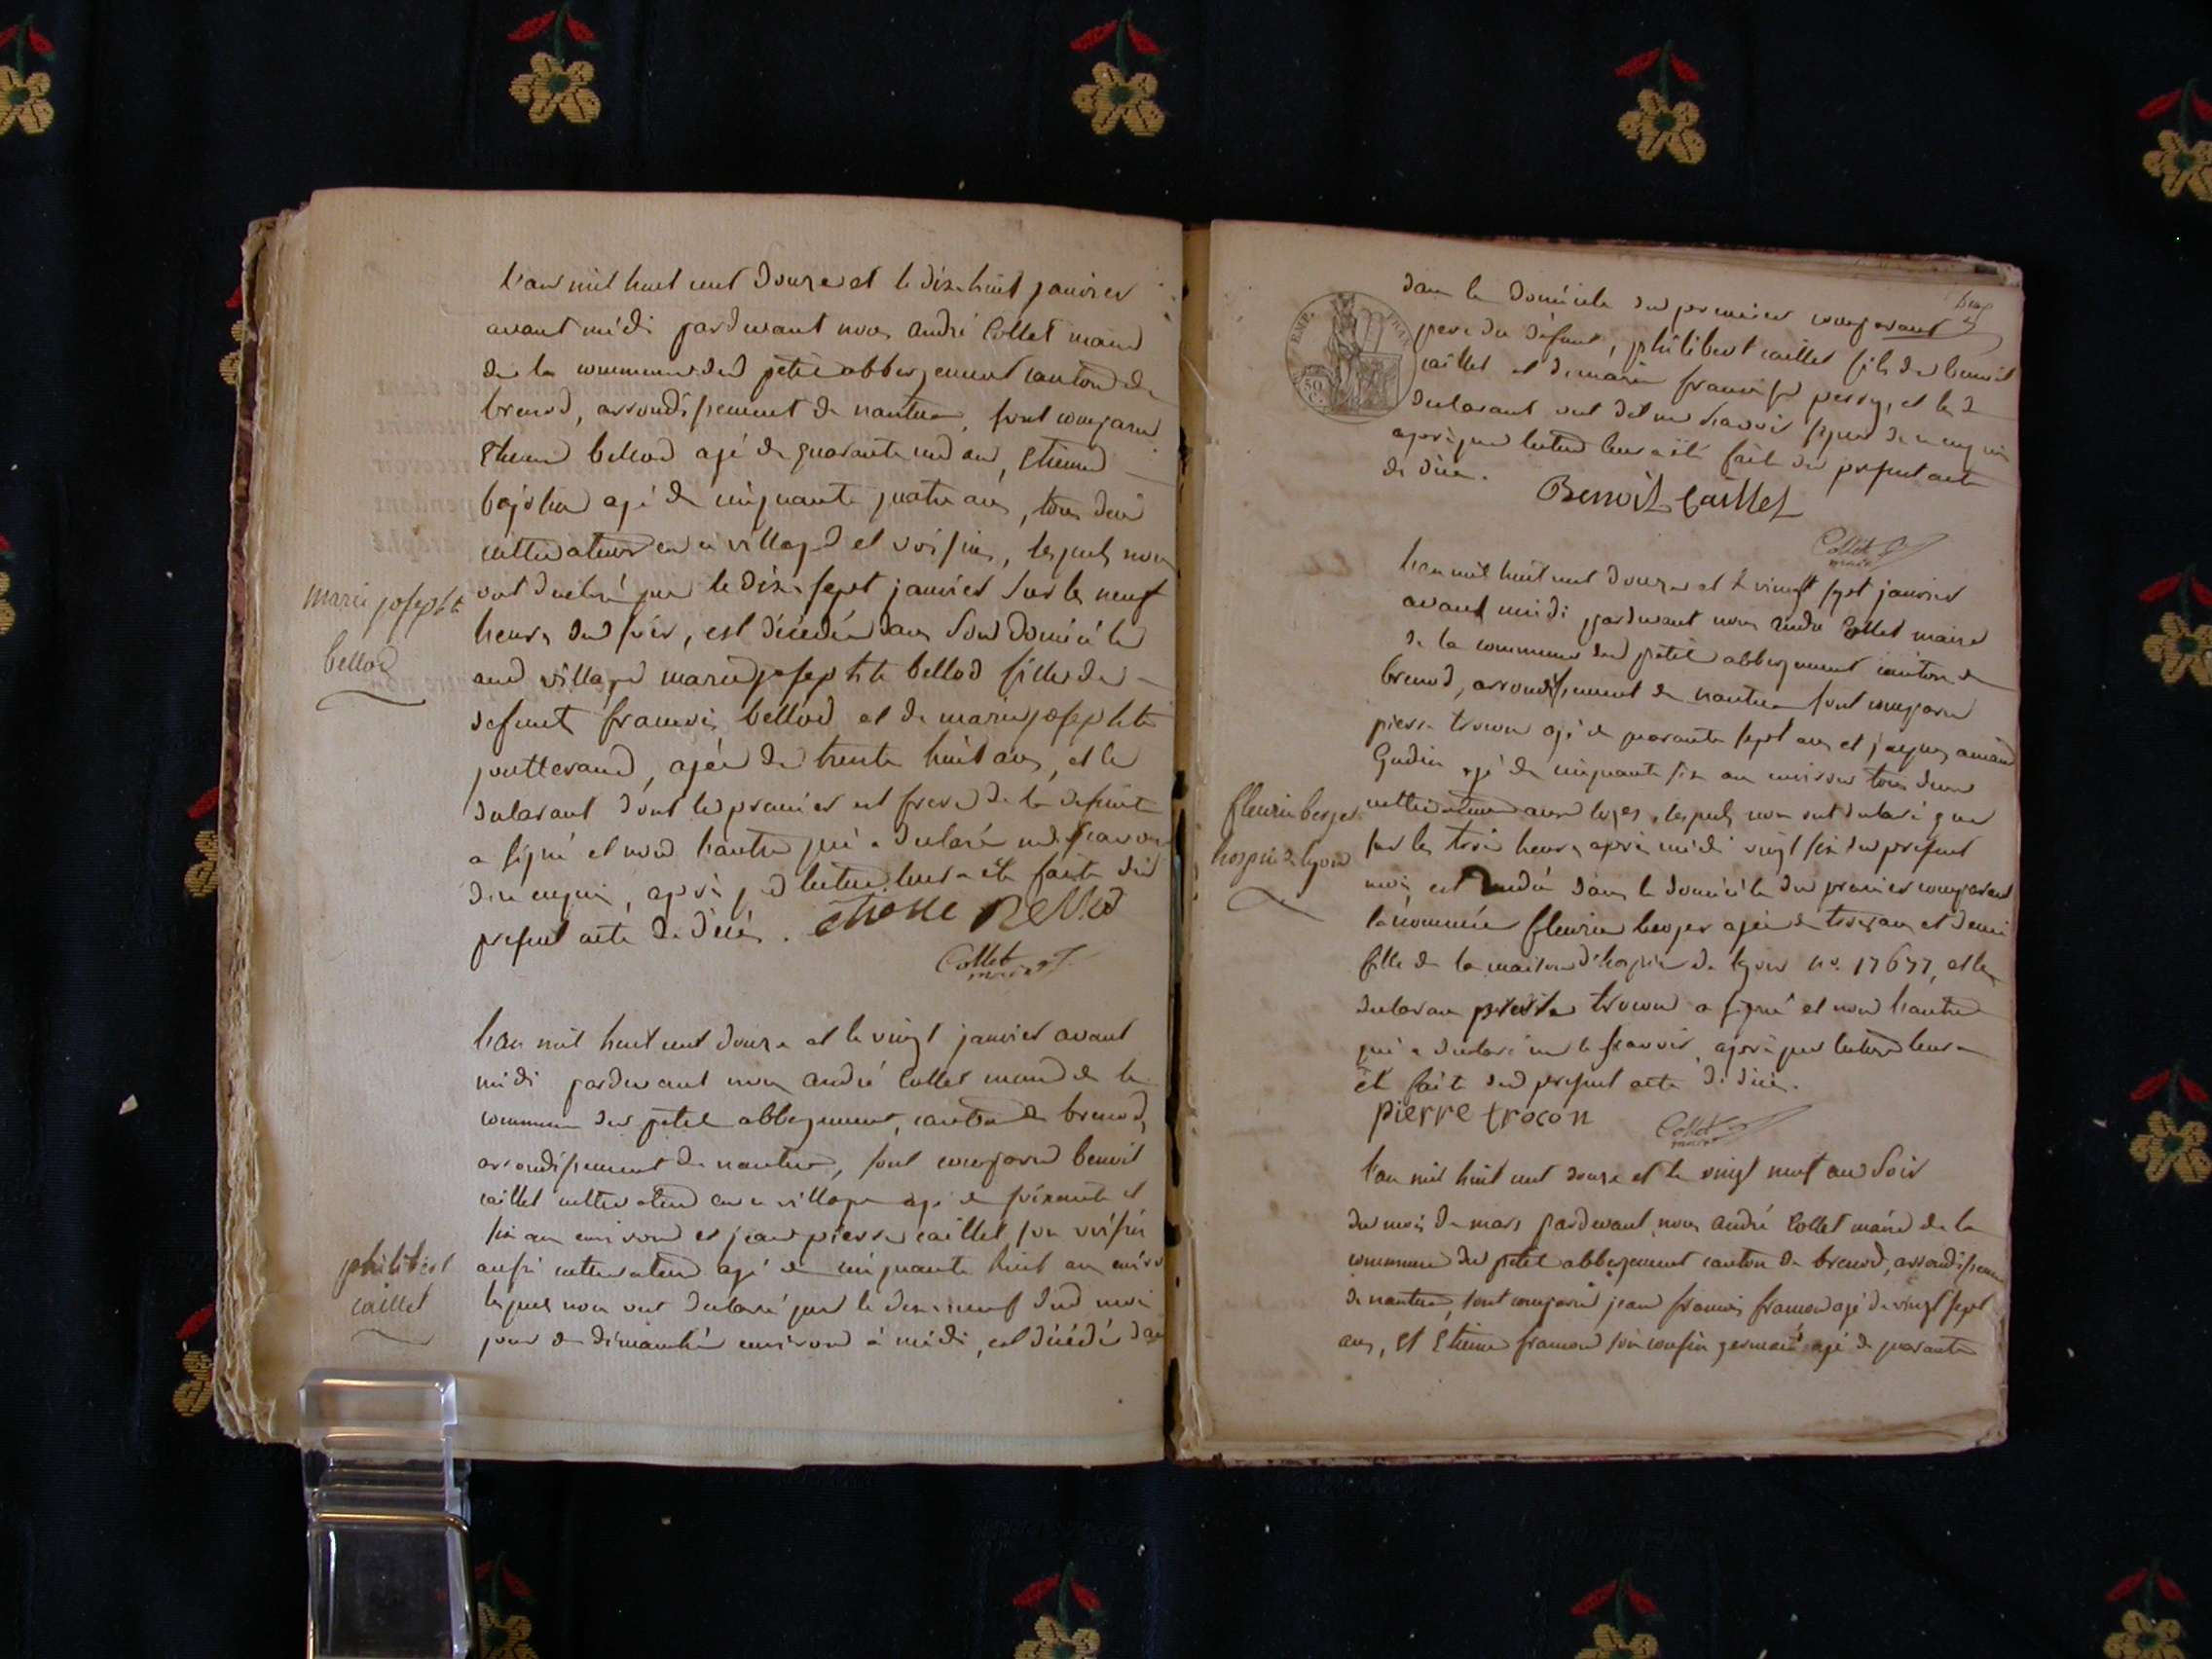 l'an mil huit cent douze et le dix huit janvier
avant midi pardevant nous andré Collet maire
de la commune du petit abbergement canton de
brenod, arrondissement de nantua, sont comparu
Etienne bellod agé de quarante un ans, Etienne
agé de cinquante quatre ans, tous deux
cultivateurs en ce village et voisins, lesquels nous
ont declaré que le dix sept janvier sur les neuf
heures du soir, est décedée dans son domicile
aud village marie josephte bellod fille de
defunt francois bellod et de marie josephte
agée de trente huit ans, et les
declarant dont le premier est frere de la defunte
a signé et non l'autre qui a declaré ne scavoir
de ce enquis, après que lecture leur a été faite du
present acte de décès.
marie josephte
bellod
Collet
maire
l'an mil huit cent douze et le vingt janvier avant
midi pardevant nous andré Collet maire de la
commune du petit abbergement, canton de brenod,
arrondissement de nantua, sont comparu benoit
caillet cultivateur en ce village agé de soixante et
six ans environ et jean pierre caillet son voisin
aussi cultivateur agé de cinquante huit ans environ
lesquels nous ont declaré que le dix neuf du mois
jour de dimanche environ à midi, est décédé dans
philibert
caillet
dans le domicile du premier comparant
pere du défunt, philibert caillet fils de benoit
caillet et de marie francoise perrey, et les
declarant ont dit ne scavoir signer de ce enquis
après que lecture leur a été faite du present acte
de décès.
Benoit Caillet
Collet
maire
EMP. FRAN
50
C.
l'an mil huit cent douze et le vingt sept janvier
avant midi pardevant nous andré Collet maire
de la commune du petit abbergement canton de
brenod, arrondissement de nantua sont comparu
pierre trocon agé de quarante sept ans et jacques amand
Gudin agé de cinquante six ans environ tous deux
cultivateurs aux loyes, lesquels nous ont declaré que
sur les trois heures après midi vingt six du present
mois, est décedée dans le domicile du premier comparant
la nommée fleurie berger agée de trois ans et demi
fille de la maison d'hospice de lyon no. 17677, et les
declarant pierre trocon a signé et non l'autre
qui a declaré ne le scavoir, après que lecture leur a
été faite du present acte de décès.
fleurie berger
hospice de lyon
pierre trocon
Collet
maire
l'an mil huit cent douze et le vingt neuf au soir
du mois de mars pardevant nous andré Collet maire de la
commune du petit abbergement canton de brenod, arrondissement
de nantua, sont comparu jean francois framon agé de vingt sept
ans, et Etienne framon son cousin germain agé de quarante